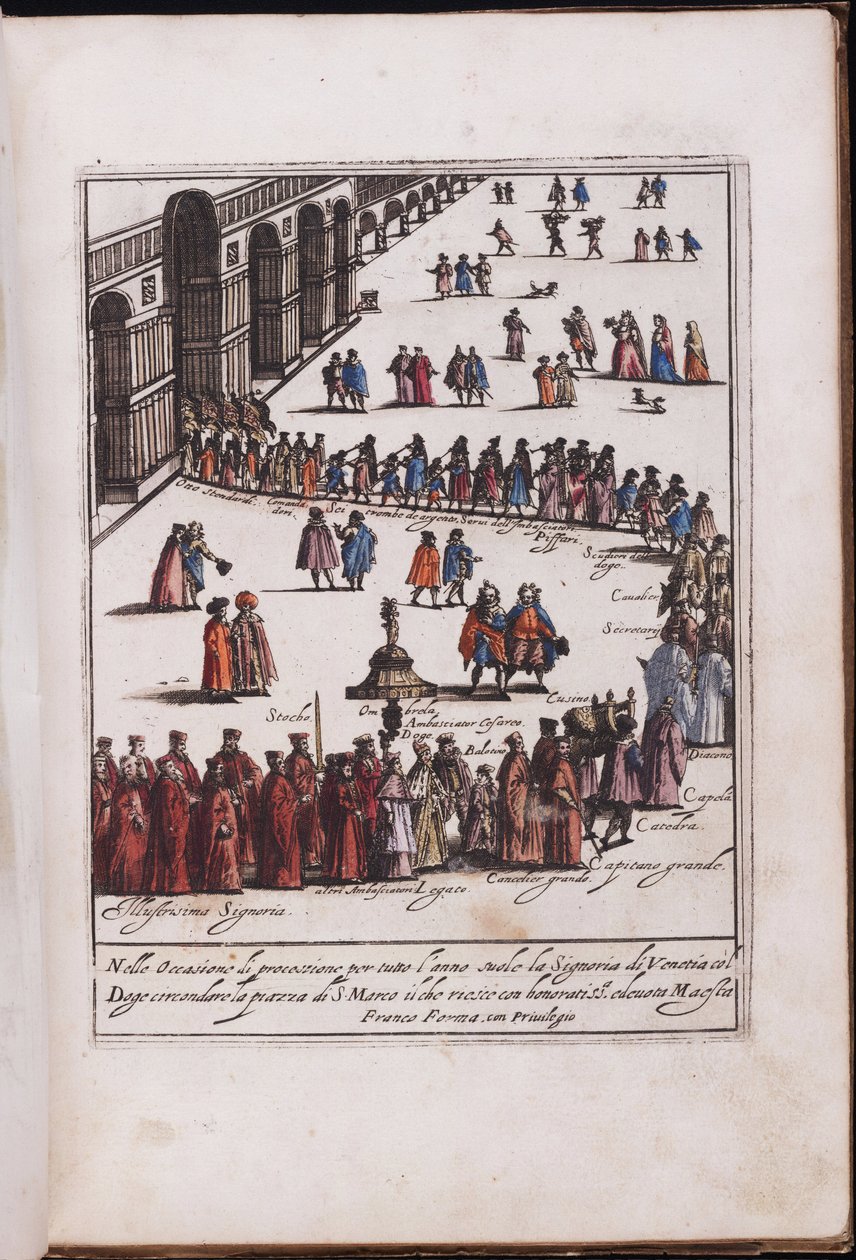 Otto Stendardi.
Comanda
dori.
Sei trombe de argento.
Servi dell'Imbasciatori
Piffari.
Scudieri delli
doge.
Cavalier.
Secretarij
Stocho.
Ombrela
Cusino.
Ambasciator Cesareo.
Doge.
Balotino
Diacono
Capela
Catedra.
Capitano grande.
Cancelier grando.
altri Ambasciatori
Legato.
Illustrisima Signoria.
Nelle Occasione di processione per tutto l'anno suole la Signoria di Venetia col
Doge circondare la piazza di S. Marco il che riesce con honoratiss.ª e devota Maesta
Franco Forma. con Privilegio